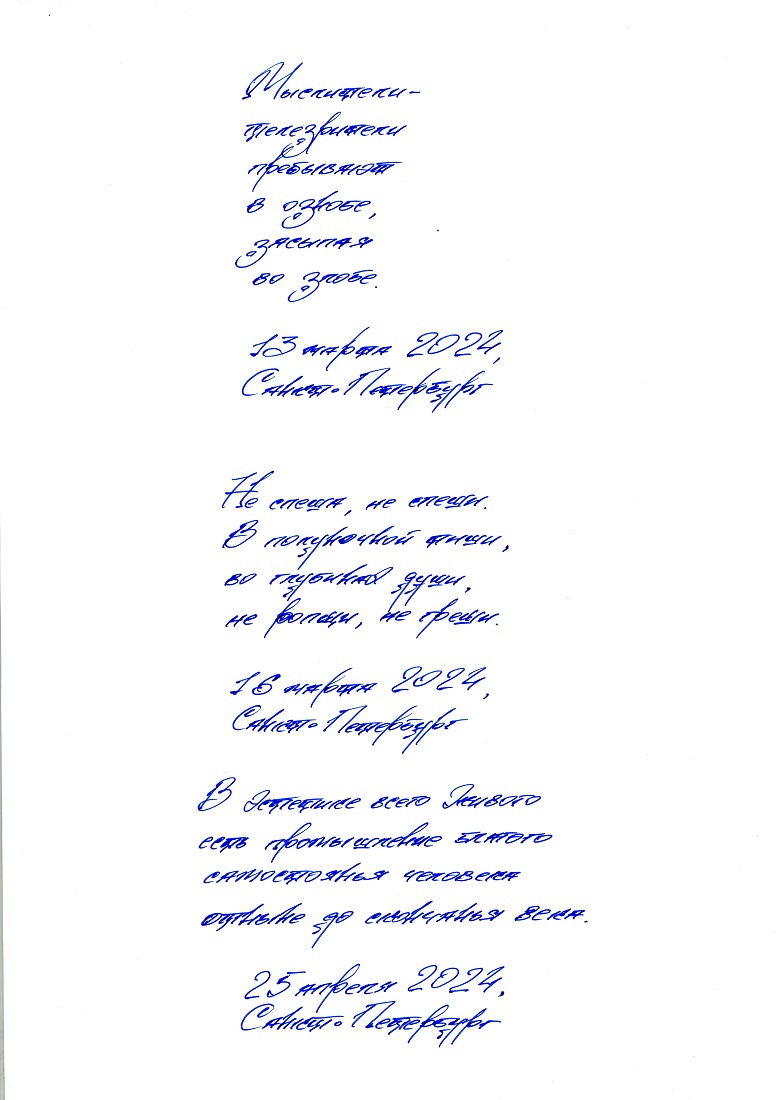 Мыслители-
телезрители
пребывают
в ознобе,
засыпая
во злобе.
13 марта 2024,
Санкт-Петербург
Не спеша, не спеши.
В полуночной тиши,
во глубинах души,
не ропщи, не греши.
16 марта 2024,
Санкт-Петербург
В эстетике всего живого
есть промышление благого
самостоянья человека
отныне до скончанья века.
25 апреля 2024,
Санкт-Петербург